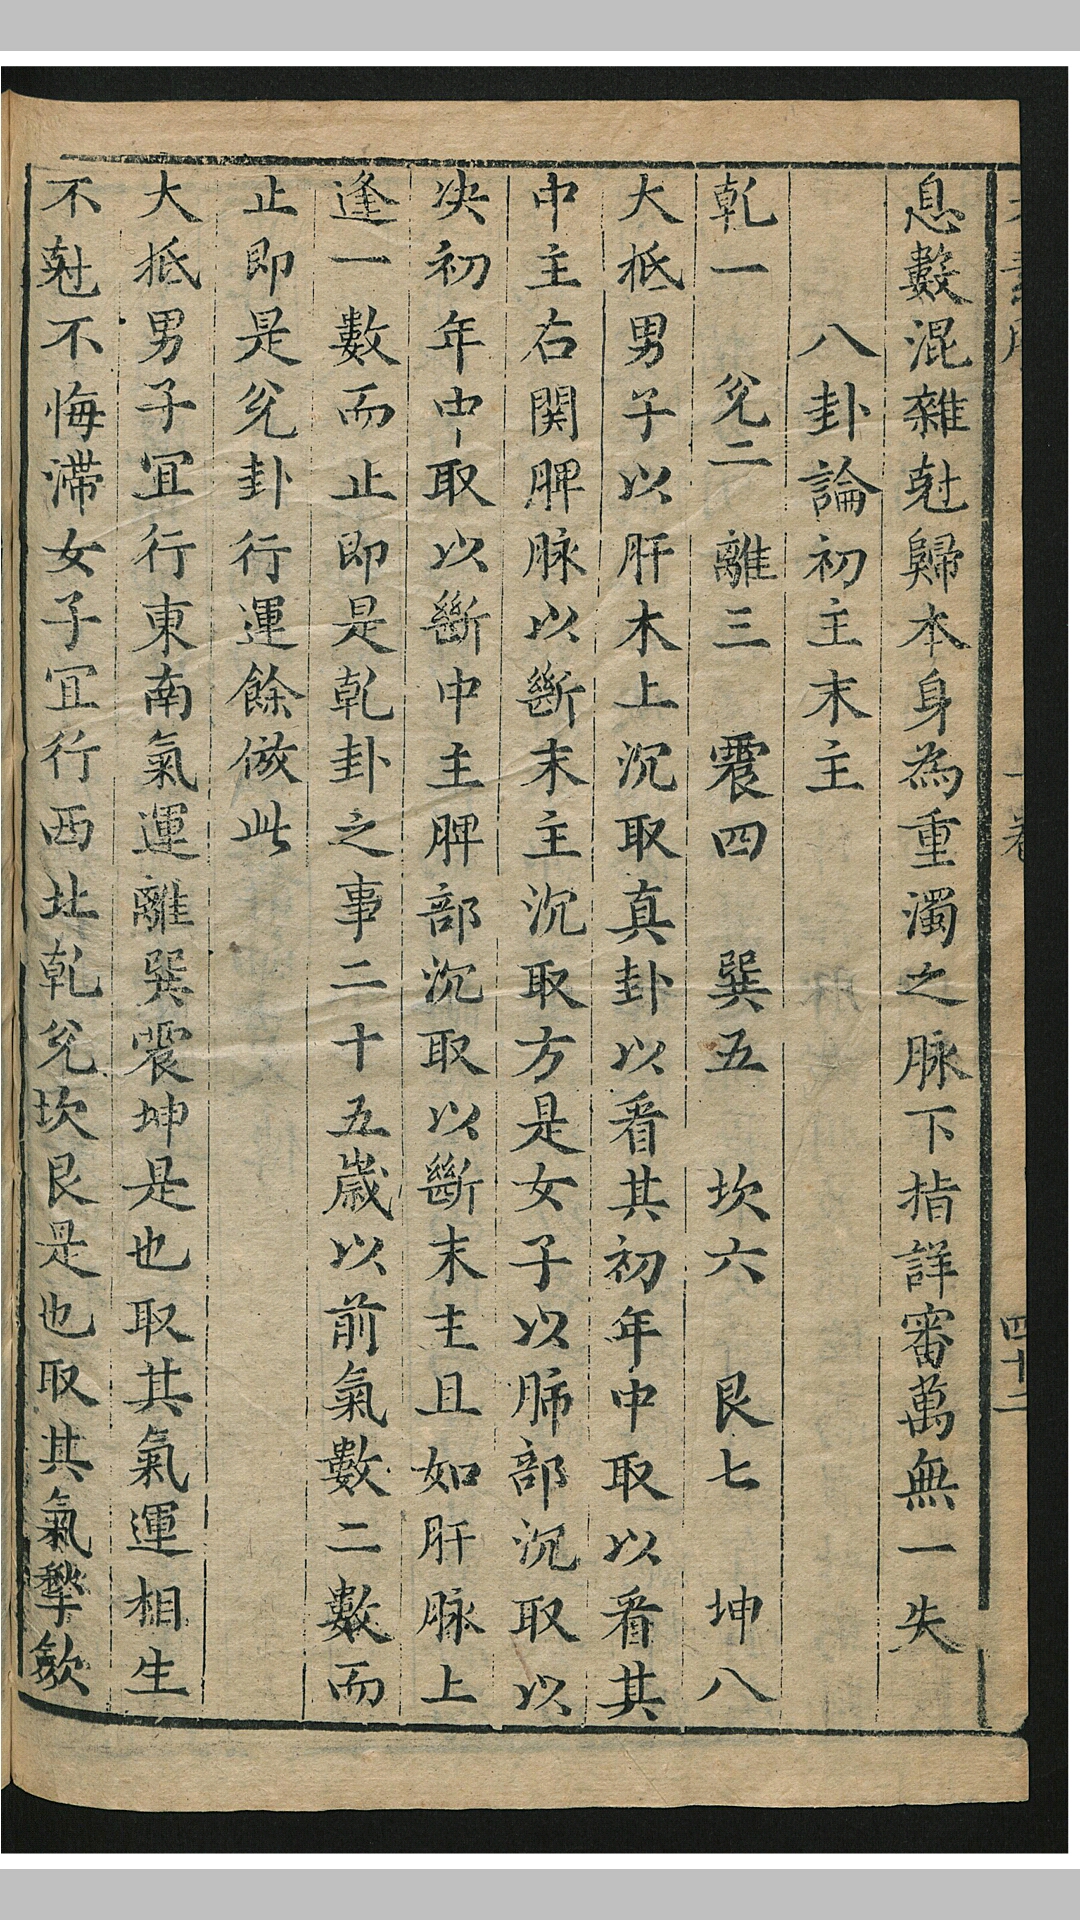 息數混雜尅歸本身為重濁之脉下指詳審萬無一失
八卦論初主末主
乾一 兊二 離三 震四 巽五 坎六 艮七 坤八
大抵男子以肝木上沉取真卦以看其初年中取以看其
中主右関脾脉以斷末主沉取方是女子以肺部沉取以
决初年中取以斷中主脾部沉取以斷末主且如肝脉上
逢一數而止即是乾卦之事二十五歲以前氣數二數而
止即是兊卦行運餘倣此
大抵男子宜行東南氣運離巽震坤是也取其氣運相生
不尅不悔滯女子宜行西北乾兊坎艮是也取其氣擎歛